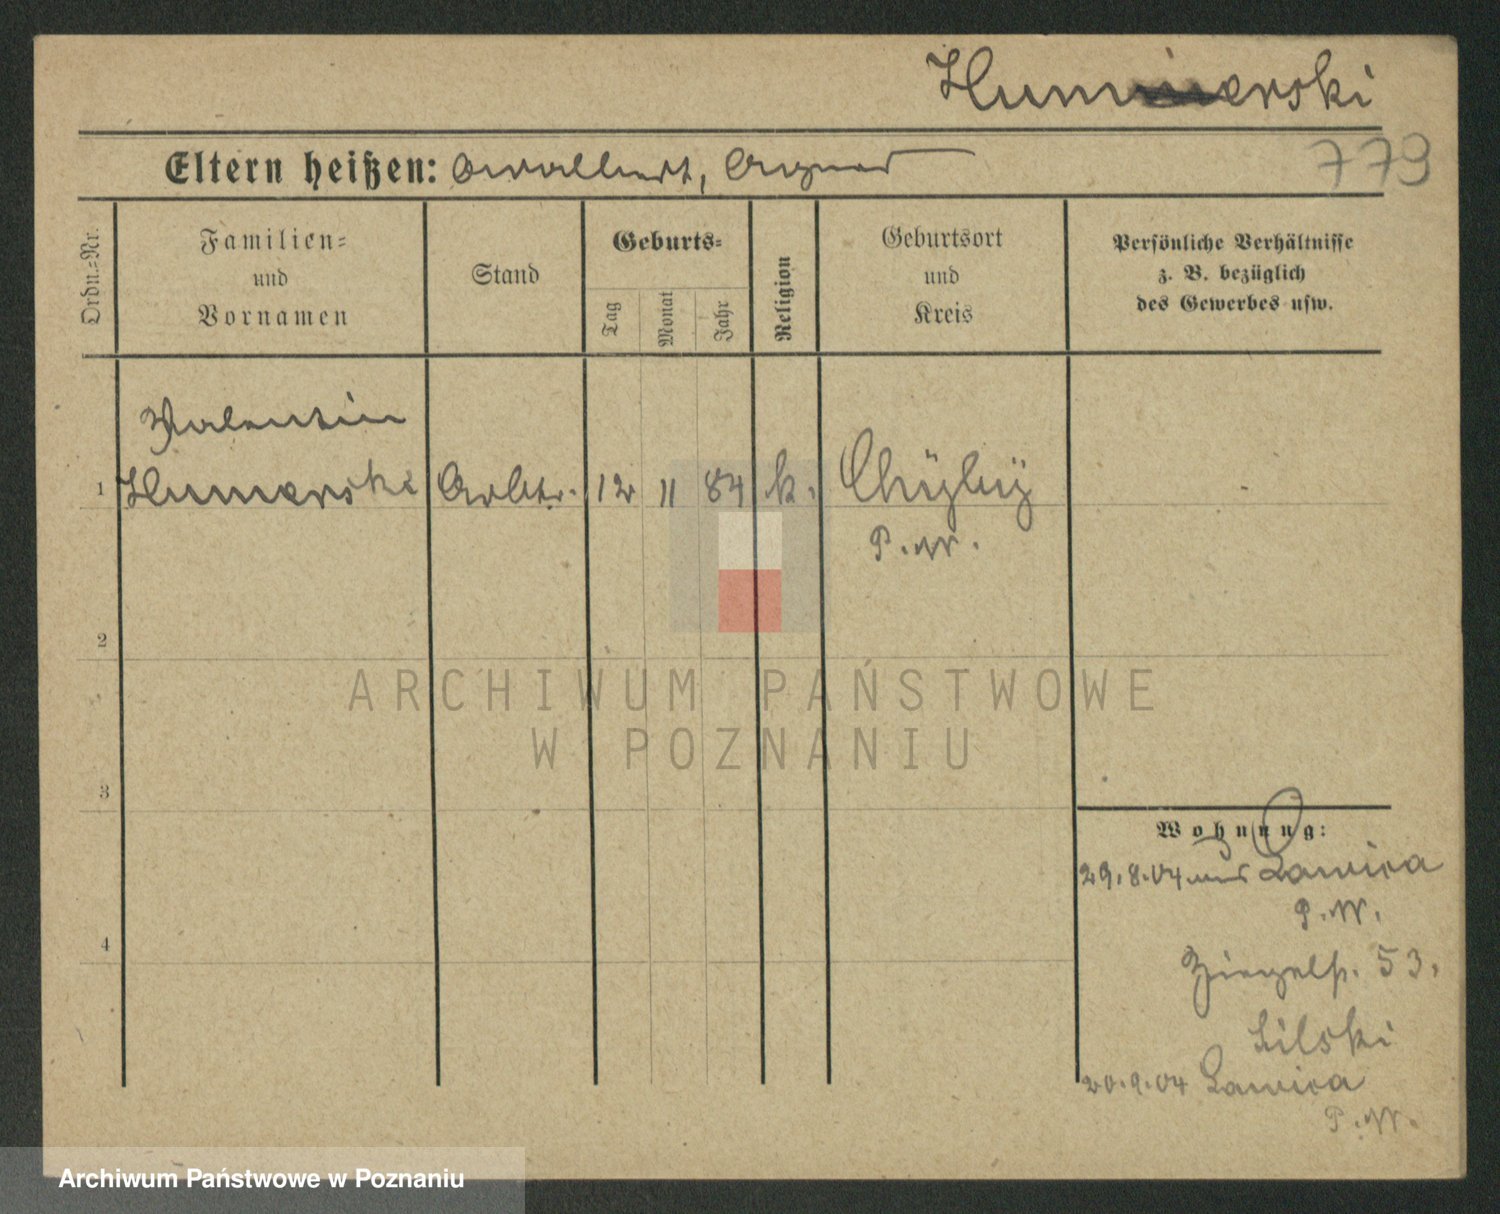 Humerski
779
Eltern heißen: Adalbert, Agnes
Ordn.-Nr.
Familien-
und
Vornamen
Stand
Geburts-
Tag
Monat
Jahr
Religion
Geburtsort
und
Kreis
Persönliche Verhältnisse
z. B. bezüglich
des Gewerbes usw.
Valentin
1 Humerski Arbtr. 12 11 84 k. Chÿbÿ
P. W.
2
3
4
Wohnung:
29.8.04 aus Lawica
P. W.
Ziegelst. 53.
Lilski
20.9.04 Lawica
P. W.
ARCHIWUM PAŃSTWOWE
W POZNANIU
Archiwum Państwowe w Poznaniu